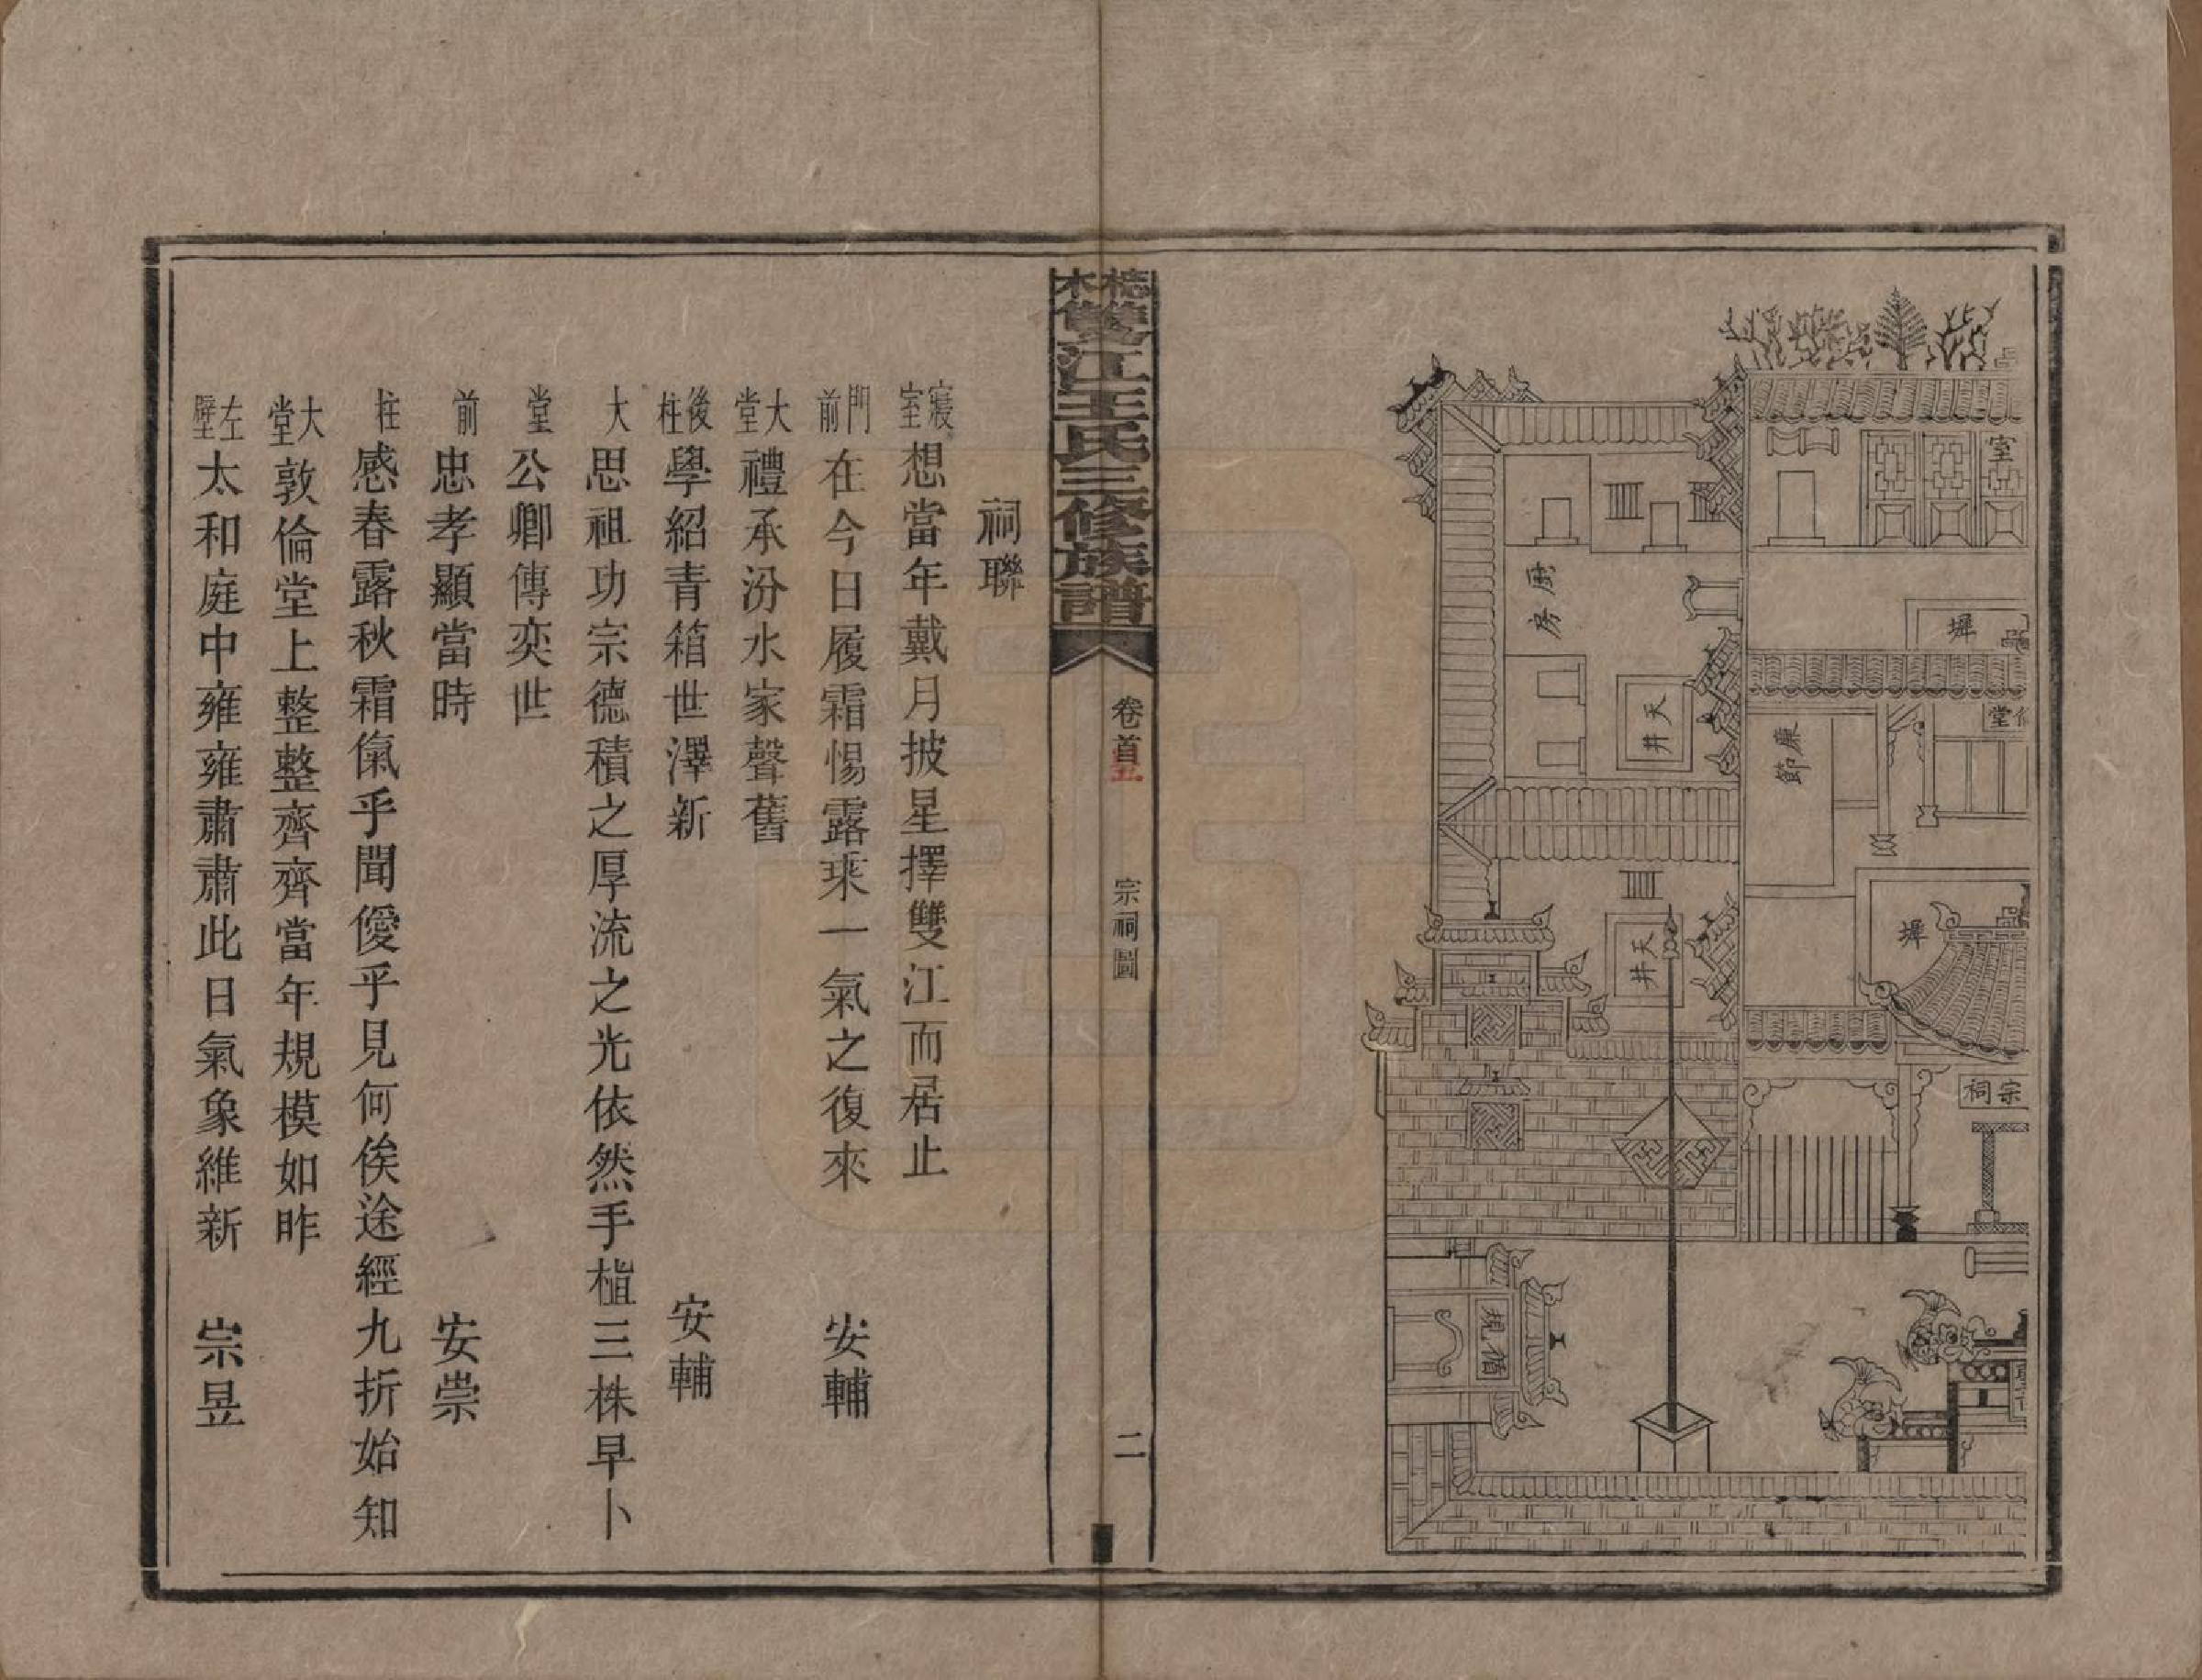 室
墀
廚房
天井
堂
廉節
天井
墀
宗祠
規循
木樁雙江王氏三修族譜
卷首五
宗祠圖
二
祠聯
寢室 想當年戴月披星擇雙江而居止
門前 在今日履霜惕露琜一氣之復來 安輔
大堂 禮承汾水家聲舊
後柱 學紹青箱世澤新 安輔
大 思祖功宗德積之厚流之光依然手植三株早卜
堂 公卿傳奕世
前 忠孝顯當時 安崇
柱 感春露秋霜僾乎聞僾乎見何俟途經九折始知
大堂 敦倫堂上整整齊齊當年規模如昨
左壁 太和庭中雍雍肅肅此日氣象維新 宗昱